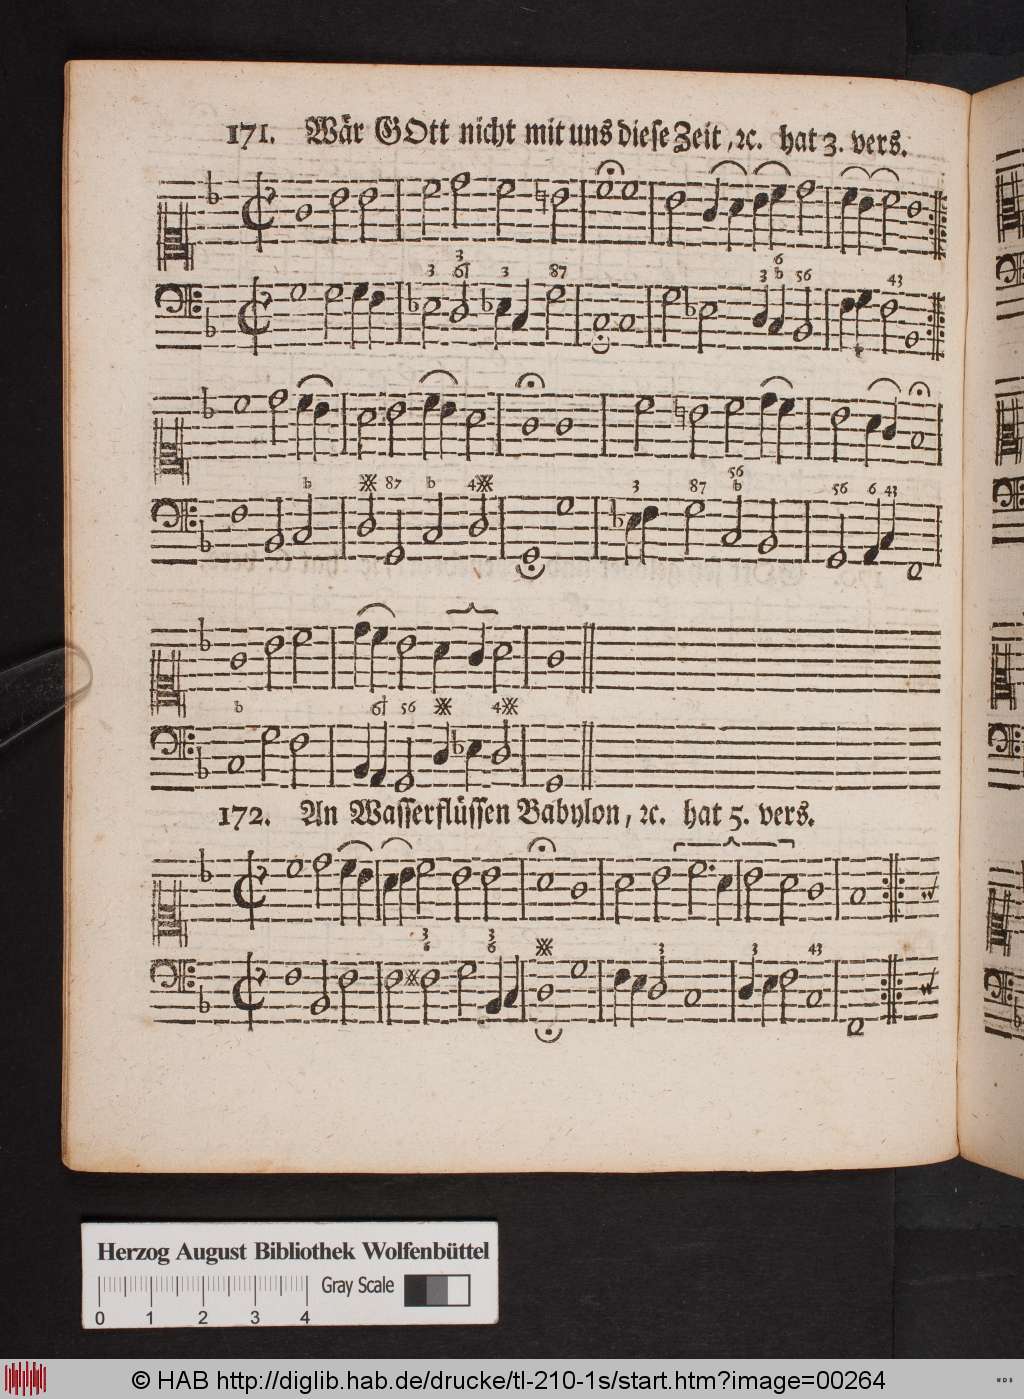 171. Wär GOtt nicht mit uns diese Zeit, ꝛc. hat 3. vers.
3 3 6† 3 87 3 6 b 56 43
b ※ 87 b 4※ 3 87 56 b 56 6 43
b 6† 56 ※ 4※
172. An Wasserflüssen Babylon, ꝛc. hat 5. vers.
3 6 3 6 ※ 3 3 43
Herzog August Bibliothek Wolfenbüttel
Gray Scale
0 1 2 3 4
© HAB http://diglib.hab.de/drucke/tl-210-1s/start.htm?image=00264